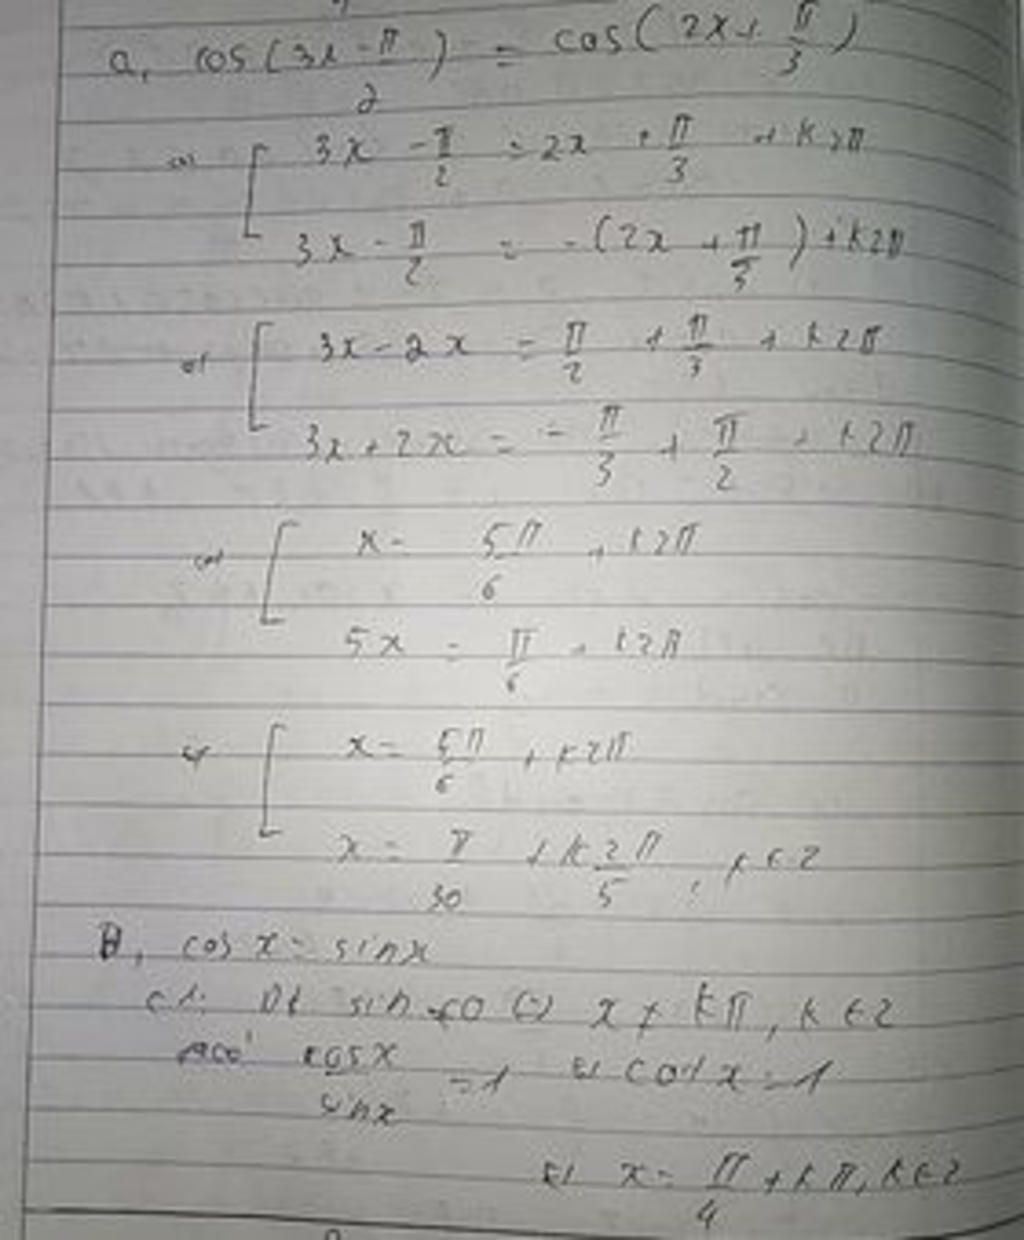 a, cos(3x - π/2) = cos(2x + π/3)
⇔ [ 3x - π/2 = 2x + π/3 + k2π
3x - π/2 = -(2x + π/3) + k2π
⇔ [ 3x - 2x = π/2 + π/3 + k2π
3x + 2x = - π/3 + π/2 + k2π
⇔ [ x = 5π/6 + k2π
5x = π/6 + k2π
⇔ [ x = 5π/6 + k2π
x = π/30 + k2π/5 ; k ∈ Z
B, cos x = sin x
c1: sin ≠ 0 ⇔ x ≠ kπ, k ∈ Z
cosx/sinx = 1 ⇔ cot x = 1
⇔ x = π/4 + kπ, k ∈ Z